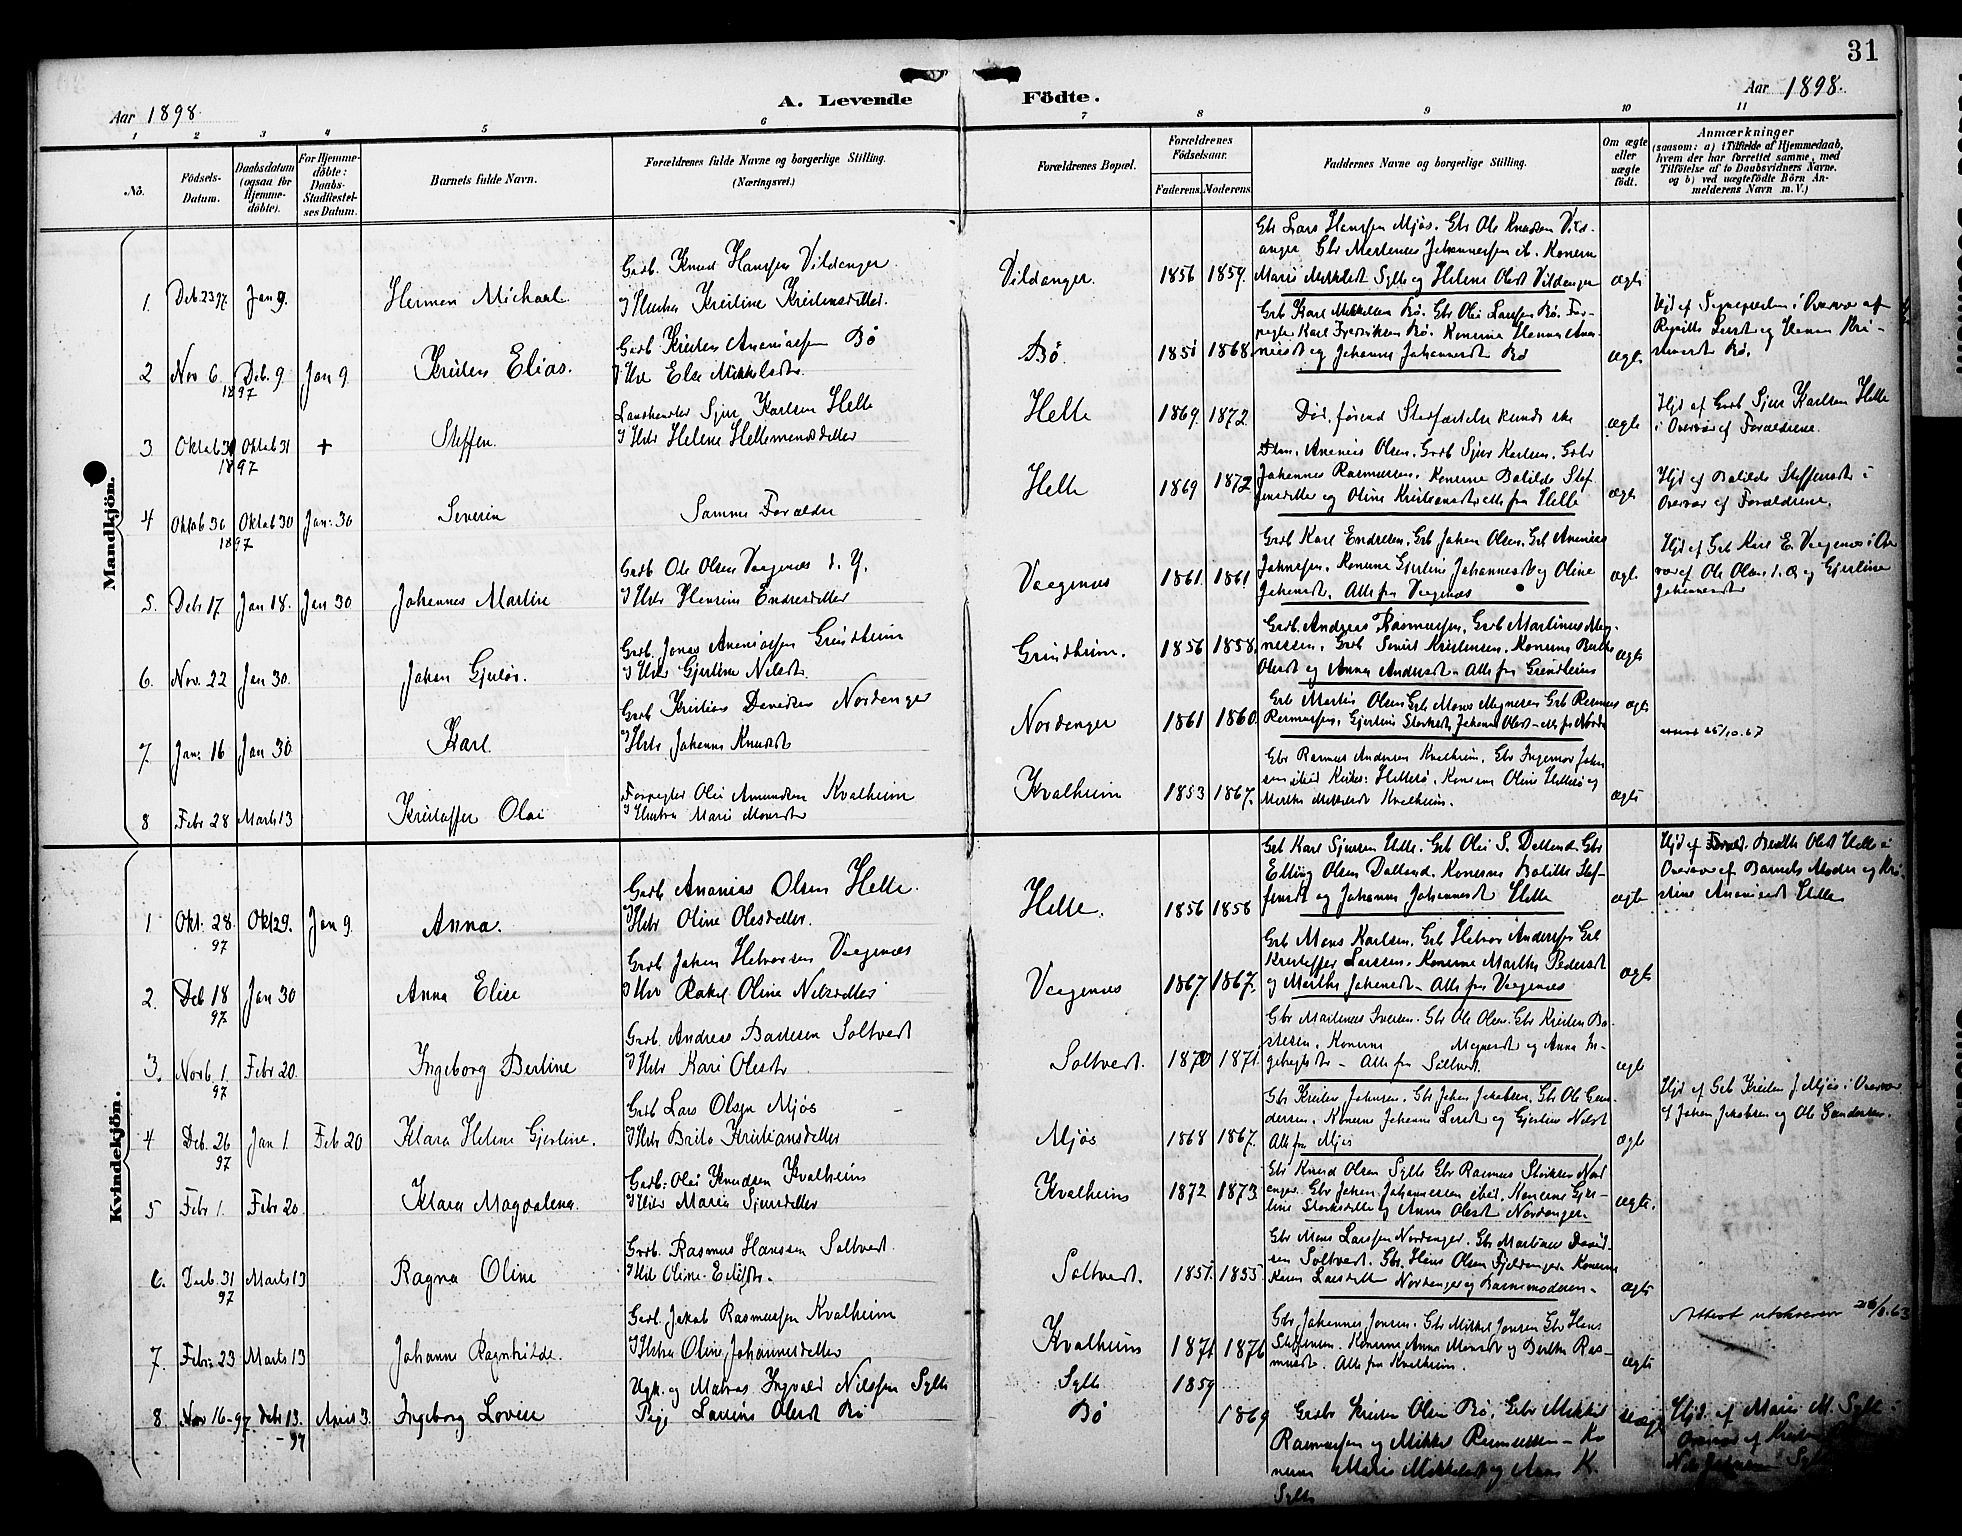 31
Aar 1898.
A. Levende Födte.
Aar 1898.
1 2 3 4 5 6 7 8 9 10 11
No.
Födsels-Datum.
Daabsdatum (ogsaa for Hjemme-döbte).
For Hjemme-döbte: Daabs-Stadfestel-ses Datum.
Barnets fulde Navn.
Forældrenes fulde Navne og borgerlige Stilling. (Næringsvei.)
Forældrenes Bopæl.
Forældrenes Födselsaar.
Faderens. Moderens.
Faddernes Navne og borgerlige Stilling.
Om ægte eller uægte födt.
Anmærkninger
(saasom: a) i Tilfælde af Hjemmedaab, hvem der har forrettet samme, med Tilföielse af to Daabsvidners Navne, og b) ved uægtefödte Börn An-melderens Navn m. V.)
Mandkjön.
1. Deb. 23 97. Jan 9. Hermen Michael
Garb. Knud Hanssen Vildanger
I Hustru Kristine Kristensdatter.
Vildanger. 1856 1859.
Gbr Lars Hanssen Mjös. Gbr Ole Knudsen Vild-
anger Gbr Martenes Johannessen ib. Konerne
Marie Mikkelsdt Sylte og Helene Olsdt Vildanger
ægte
2 Nov 6 1897 Deb. 9 Jan 9 Kristen Elias.
Garb. Kristen Ananiassen Bö
I Hst Else Mikkelsdtr
Bö 1851 1868
Garb Karl Mikkelsen Bö. Gbr Olai Larssen Bö. For-
pagter Karl Fredriksen Bö. Konerne Hanna Ana-
niasdt og Johanne Johannesdt Bö
ægte
3 Oktob 31 1897 Oktob 31 + Steffen.
Landhandler Sjur Karlsen Helle
I Hstr Helene Hellemensdatter
Helle 1869. 1872.
Död, förend Stadfæstelse kunde ske
ægte
Hjd af Garb Sjur Karlsen Helle
i Overvær af Forældrene.
4 Oktob 30 1897 Oktob 30 Jan: 30 Severin
Samme Forældre
Helle 1869 1872
Ananias Olsen. Garb Sjur Karlsen. Garbr
Johannes Rasmussen. Konerne Bolilde Stef-
fensdatter og Oline Kristiansdtr alle fra Helle
ægte
Hjd af Bolilde Steffensdt i
Overvær af Forældrene.
5. Debr 17 Jan 18. Jan 30 Johannes Martin
Garb Ole Olsen Vaagenæs d. Y.
I Hstr Hansine Endresdatter
Vaagenæs 1861. 1861
Garb Karl Endresen. Grb Johan Olsen. Grb Ananias
Johnssen. Konerne Gjertine Johannesdt og Oline
Johansdt. Alle fra Vaagenæs
ægte
Hjd af Grb Karl E. Vaagenæs i Over-
vær af Ole Olsen og Gjertine
Johannesdt
6. Nov. 22 Jan 30. Johan Gjerlöv.
Garb. Jonas Ananiassen Grindheim
I Hstr Gjertine Nilsdt.
Grindheim. 1856 1858.
Garb. Andreas Rasmussen. Garb Martinus Mag-
nessen. Grb Smut Kristensen. Konerne Berthe
Olsdt og Anna Andersdt. Alle fra Grindheim
ægte
7. Jan: 16 Jan 30 Karl
Garb Kristian Davidsen Nordanger
I Hstr Johanne Knudsdt
Nordanger 1861 1860.
Grb Martin Olsen Grb Mons Magnesen Grb Rasmus
Rasmussen. Gjertine Storksdt, Johanne Olsdt alle fra Nordr
ægte
25/10.67
8 Febr 28 Marts 13 Kristoffer Olai
Forpagter Olai Amundsen Kvalheim
I Hustru Marie Monsdtr
Kvalheim 1853 1867.
Gbr Rasmus Andersen Kvalheim. Gbr Ingemar Johan-
sen Hellesö. Konerne Oline Hellesö og
Marthe Mikkelsdt Kvalheim.
ægte
Kvindekjön.
1 Okt. 28. 97 Okt 29. Jan 9. Anna.
Garb Ananias Olsen Helle.
I Hstr Oline Olesdatter.
Helle. 1856 1858
Grb Karl Sjursen Helle. Grb Olai S. Dalland. Gbr
Elling Olsen Dalland. Konerne Bolilde Stef-
fensdt og Johanne Johannesdt Helle
ægte
Hjd af Berthe Olsdt Helle i
Overvær af Barnets Moder og Kri-
stine Ananiasdt Helle
2. Deb 18 97 Jan 30 Anna Elise
Garb Johan Helvorsen Vaagenæs
I Hstr Rakel Oline Nilsdatter
Vaagenæs 1867. 1867.
Grb Mons Karlsen. Grb Helvor Anderssen Grb
Kristoffer Larssen. Konerne Marthe Pedersdt
og Marthe Johansdt. Alle fra Vaagenæs
ægte
3. Novb. 1 97 Febr 20. Ingeborg Bertine
Garb. Andreas Baltesen Soltvedt
I Hstr Kari Olesdtr
Soltvedt. 1870 1871.
Gbr Martenes Iversen. Gbr Ole Olsen. Gbr Kristen Ba-
stesen. Konerne Magnesdt og Anna In-
gebrigtsdt — Alle fra Soltvedt.
ægte
4 Deb. 26 97 Jan 1. Feb 20 Klara Helene Gjertine.
Garb Lars Olsen Mjös
I Hstr Brita Kristiansdatter
Mjös 1868 1867.
Gbr Kristen Johnsen. Gbr Johan Jakobsen. Gbr Ole Gun-
dersen. Konerne Johanne Larsdt og Gjertine Nilsdt
Alle fra Mjös
ægte
Hjd af Grb Kristen J. Mjös i Overvær
af Johan Jakobsen og Ole Gundersen.
5 Febr 1. Febr 20. Klara Magdalena.
Garb: Olai Knudsen Kvalheim
I Hstr Maria Sjursdatter
Kvalheim 1872 1873
Gbr Knud Olsen Sylte Gbr Rasmus Storksen Nord-
anger. Gbr Johan Johannessen ibid. Konerne Gjer-
tine Storksdatter og Anna Olesdt Nordanger.
ægte.
6. Deb. 31 97 Marts 13 Ragna Oline
Garb. Rasmus Hanssen Soltvedt
I Hst Oline
Soltvedt. 1851. 1855
Gbr Mons Larssen Nordanger. Gbr Martines David-
sen Soltvedt. Gbr Hans Olsen Fjeldanger. Konerne
Karen Larsdatter Nordanger og Barnemoderen.
ægte
7. Feb: 23 Marts 13 Johanne Ragnhilde.
Garb. Jakob Rasmussen Kvalheim
I Hstru Oline Johannesdatter
Kvalheim 1871 1876
Gbr Johannes Jonsen. Gbr Mikkel Jonsen Gbr Hans
Steffensen. Konerne Anna Monsdt og Berthe Ras-
musdt. Alle fra Kvalheim.
ægte
Attest utskreven 26/8.63
8. Nov 16-97 Debr 13. -97 April 3. Ingeborg Lovise
Ugk. og Matros Ingvald Nilssen Sylte
Pige Lassine Olesdt Bö
Sylte 1859
Bö 1869
Grabr Kristen Olsen Bö. Gebr Mikkel
Rasmussen og Mikkel Rasmussen — Ko-
nerne Marie Mikkelsdt og Anne K.
Sylte
uægte
Hjd. af Marie M. Sylte i
Overvær af Kristen
Sylte